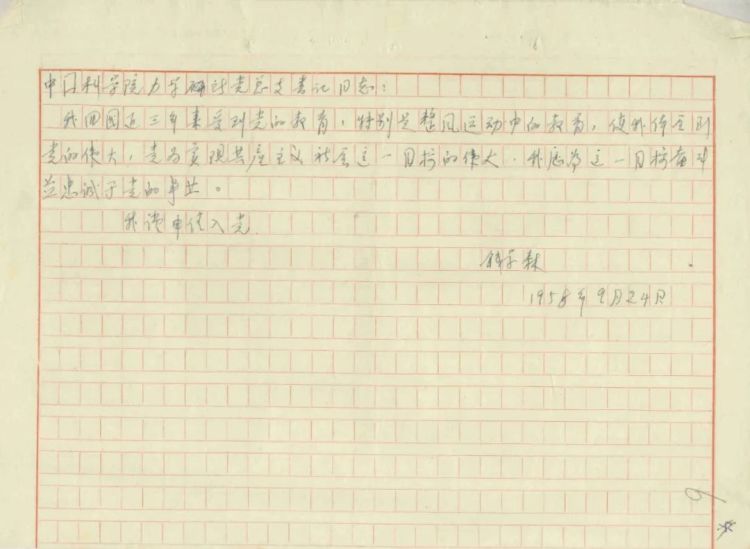 中国科学院力学研究所党总支书记同志：
我回国近三年来受到党的教育，特别是整风运动中的教育，使我体会到
党的伟大，党为实现共产主义社会这一目标的伟大。我愿为这一目标奋斗
并忠诚于党的事业。
我谨申请入党.
钱学森
1958年9月24日
9